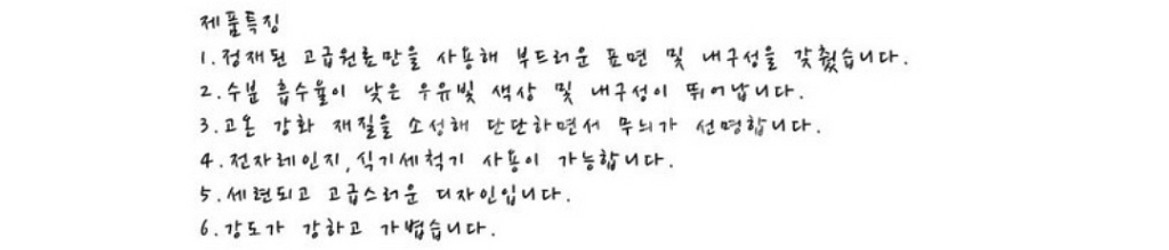 제품특징
1.정제된 고급원료만을 사용해 부드러운 표면 및 내구성을 갖췄습니다.
2.수분 흡수율이 낮은 우유빛 색상 및 내구성이 뛰어납니다.
3.고온 강화 재질을 소성해 단단하면서 무늬가 선명합니다.
4.전자레인지,식기세척기 사용이 가능합니다.
5.세련되고 고급스러운 디자인입니다.
6.강도가 강하고 가볍습니다.